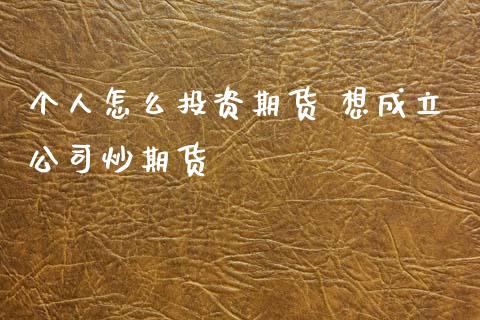 个人怎么投资期货 想成立
公司炒期货